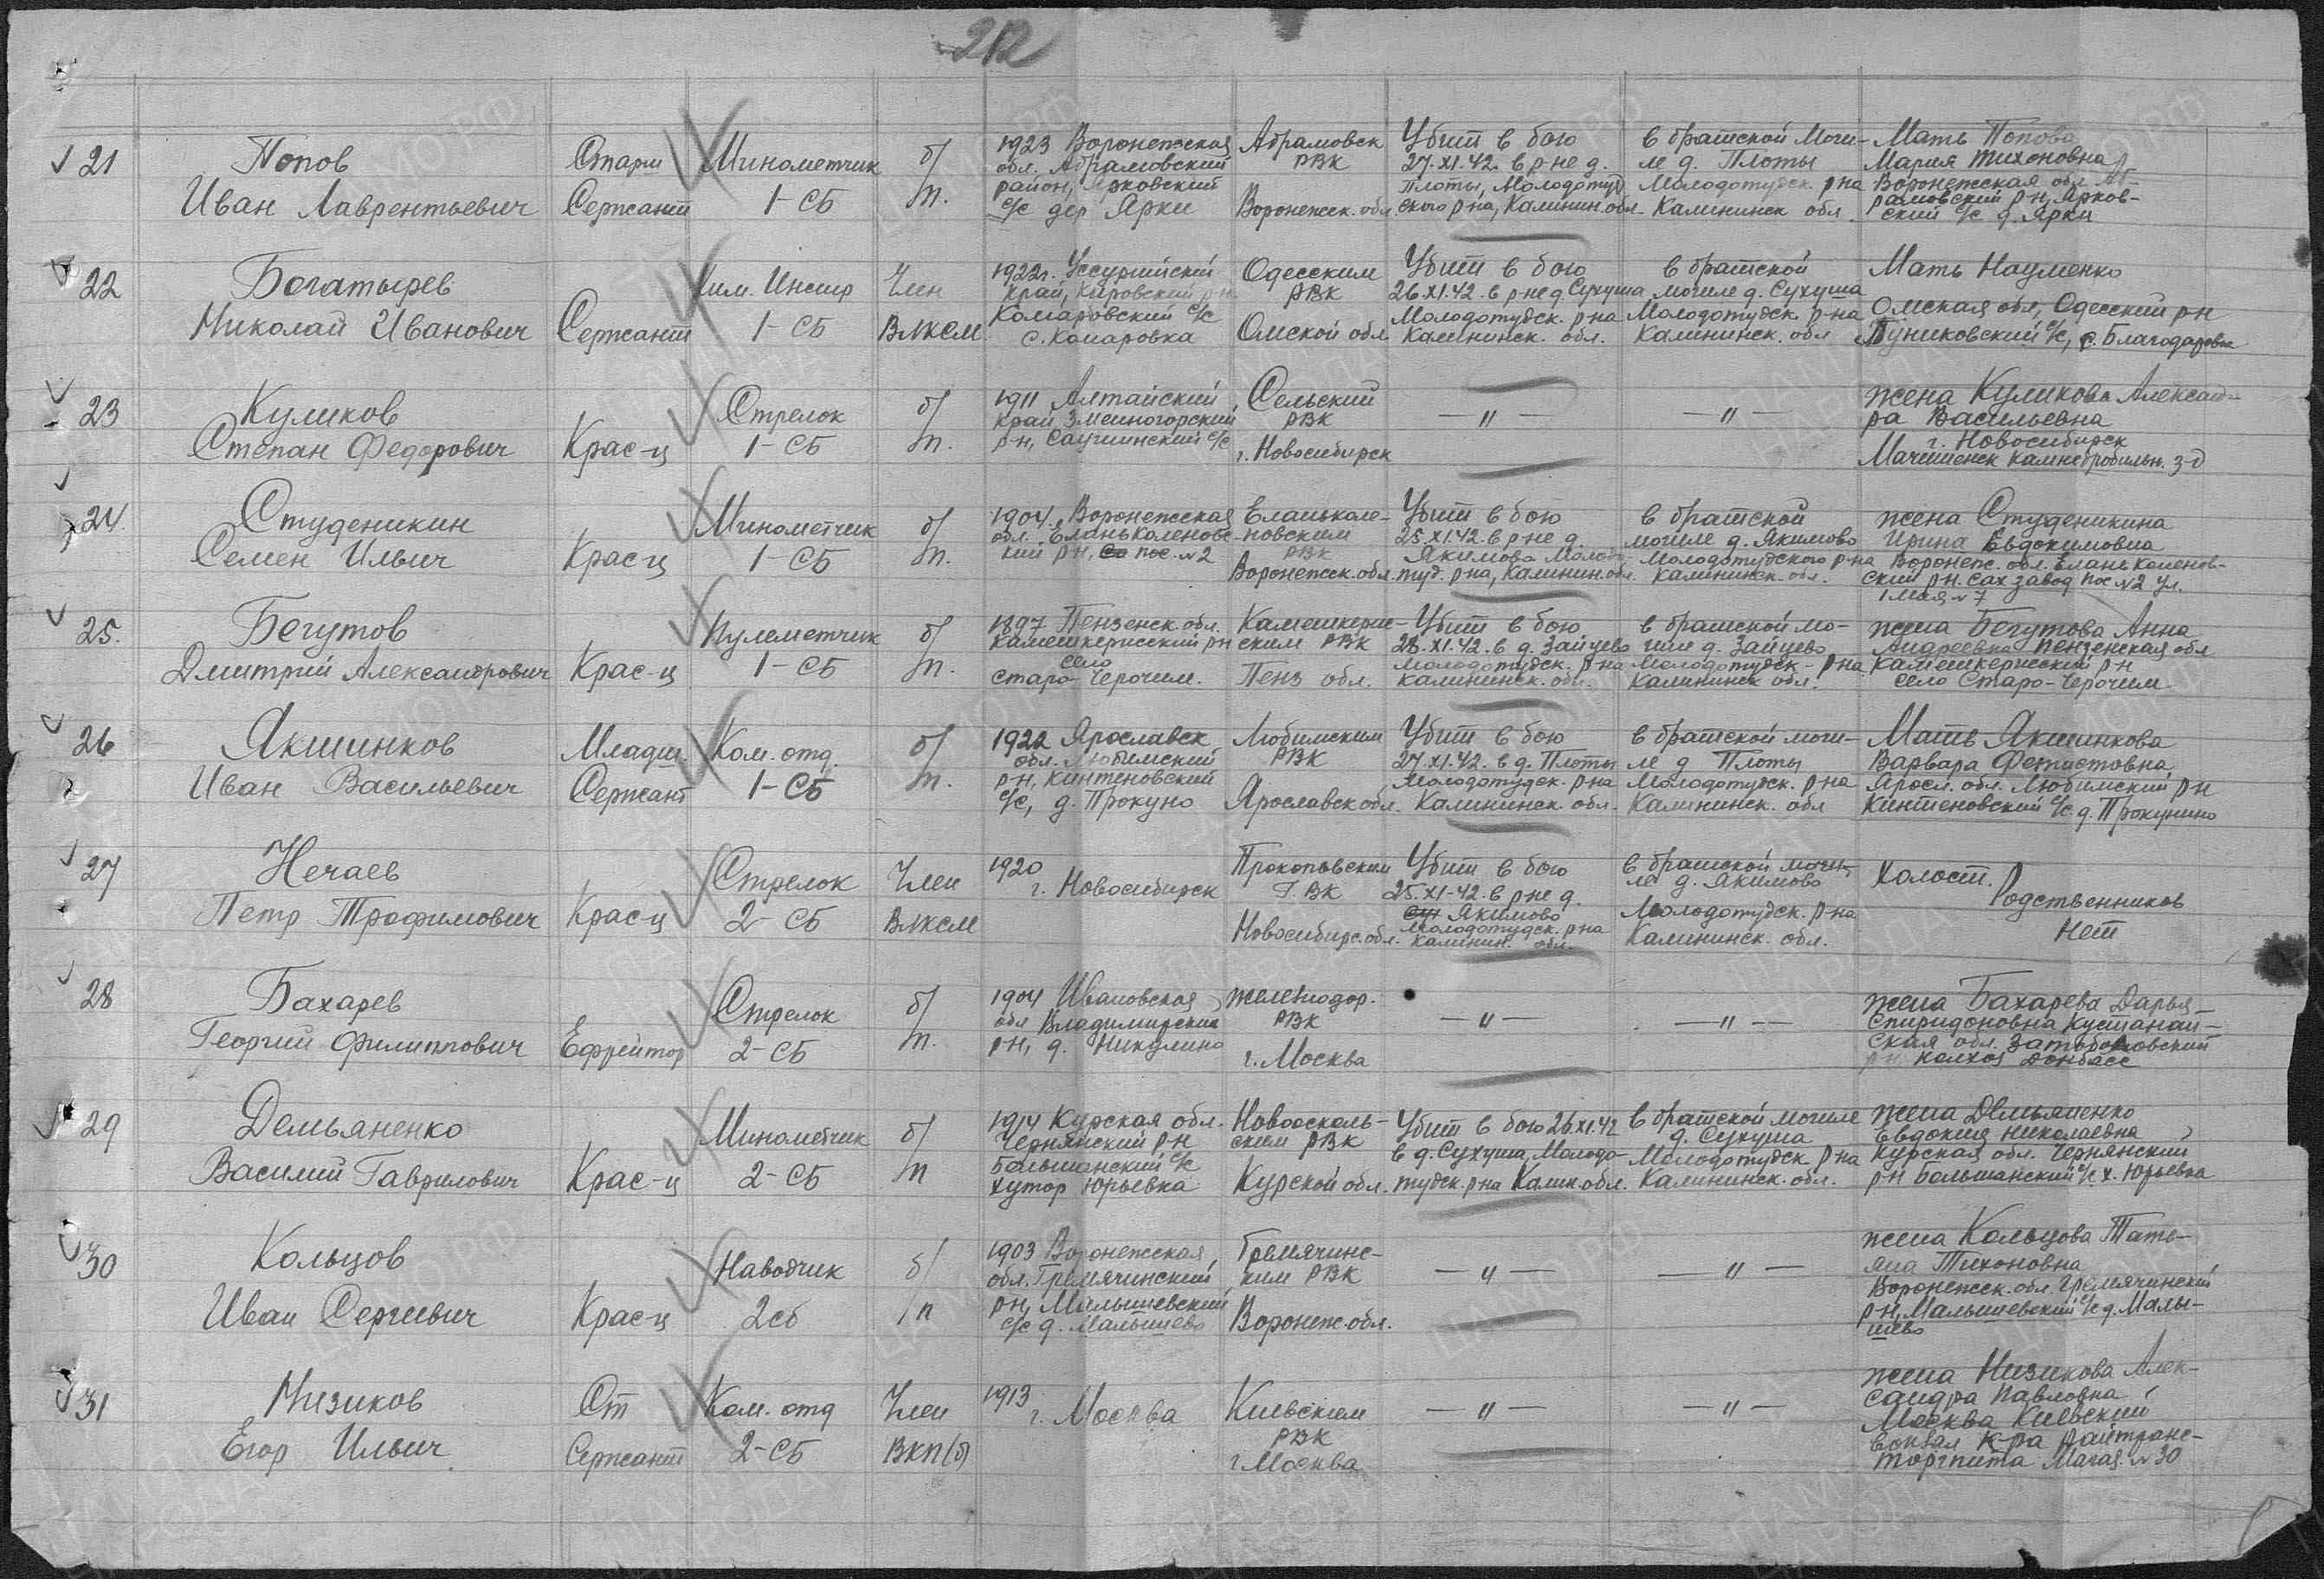 212
21
Попов
Иван Лаврентьевич
Старш
Сержант
Минометчик
1-СБ
б/
п.
1923 Воронежская
обл. Абрамовский
район, Ярковский
с/с дер Ярки
Абрамовск
РВК
Воронежск. обл
Убит в бою
27.XI.42. в р-не д.
Плоты, Молодотуд
ского р-на, Калинин. обл.
в братской моги-
ле д. Плоты
Молодотудск. р-на
Калининск обл.
Мать Попова
Мария Тихоновна
Воронежская обл. Аб-
рамовский р-н, Ярков-
ский с/с д. Ярки
22
Богатырев
Николай Иванович
Сержант
Хим. Инстр
1-СБ
Член
ВЛКСМ
1922г. Уссурийский
край, Кировский р-н
Комаровский с/с
с. Комаровка
Одесским
РВК
Омской обл
Убит в бою
26.XI.42. в р-не д. Сухуша
Молодотудск. р-на
Калининск. обл.
в братской
могиле д. Сухуша
Молодотудск р-на
Калининск. обл
Мать Науменко
Омская обл, Одесский р-н
с/с, с. Благодаровка
23
Куликов
Степан Федорович
Крас-ц
Стрелок
1-СБ
б/
п.
1911 Алтайский
край Змеиногорский
р-н, Саушинский с/с
Сельский
РВК
г. Новосибирск
— " —
— " —
жена Куликова Александ-
ра Васильевна
г. Новосибирск
камнедробильн. з-д
24.
Студеникин
Семен Ильич
Крас-ц
Минометчик
1-СБ
б/
п.
1904. Воронежская
обл. Еланьколеновс-
кий р-н, пос. №2
Еланькале-
новским
РВК
Воронежск. обл.
Убит в бою
25.XI.42. в р-не д.
Якимово Молодо
туд. р-на, Калинин. обл.
в братской
могиле д. Якимово
Молодотудского р-на
Калининск. обл.
жена Студеникина
Ирина Евдокимовна
Воронеж. обл. Елань Каленов-
ский р-н. Сах завод пос №2 ул.
1 Мая №7
25.
Бегутов
Дмитрий Александрович
Крас-ц
Пулеметчик
1-СБ
б/
п.
1897 Пензенск. обл.
Камешкерисский р-н
село
Старо-Черочим.
Камешкерис-
ским РВК
Пенз обл.
Убит в бою
28.XI.42. в д. Зайцево
Молодотудск. р-на
Калининск. обл.
в братской мо-
гиле д. Зайцево
Молодотудск-р-на
Калининск обл.
жена Бегутова Анна
Андреевна Пензенская обл
Камешкерисский р-н
село Старо-Черочим
26
Якшинков
Иван Васильевич
Младш.
Сержант
Ком. отд.
1-СБ
б/
п.
1922 Ярославск
обл. Любимский
р-н, Кинтеновский
с/с, д. Прокуно
Любимским
РВК
Ярославск обл.
Убит в бою
27.XI.42. в д. Плоты
Молодотудск. р-на
Калининск. обл.
в братской моги-
ле д Плоты
Молодотудск. р-на
Калининск. обл
Мать Якшинкова
Варвара Феп
Яросл. обл. Любимский р-н
Кинтеновский с/с д. Прокунино
27
Нечаев
Петр Трофимович
Крас-ц
Стрелок
2-СБ
Член
ВЛКСМ
1920
г. Новосибирск
Прокопьевским
Г.ВК
Новосибирс. обл.
Убит в бою
25.XI-42. в р-не д.
Якимово
Молодотудск. р-на
Калинин. обл.
в братской моги-
ле д. Якимово
Молодотудск. р-на
Калининск. обл.
Холост.
Родственников
нет
28
Бахарев
Георгий Филиппович
Ефрейтор
Стрелок
2-СБ
б/
п.
1904 Ивановская
обл Владимирский
р-н, д. Никулино
Железнодор.
РВК
г. Москва
— " —
— " —
жена Бахарева Дарья
Спиридоновна Кустанай-
ская обл. Затобо
р-н колхоз Донбасс
29
Демьяненко
Василий Гаврилович
Крас-ц
Минометчик
2-СБ
б/
п
1914 Курская обл.
Чернянский р-н
Большанский с/с
хутор Юрьевка
Новоосколь-
ским РВК
Курской обл.
Убит в бою 26.XI.42
в д. Сухуша, Молодо-
тудск. р-на Калин обл.
в братской могиле
д. Сухуша
Молодотудск р-на
Калининск. обл.
жена Демьяненко
Евдокия Николаевна
Курская обл. Чернянский
р-н Большанский с/с. х. Юрьевка
30
Кольцов
Иван Сергеевич
Крас-ц
Наводчик
2сб
б/
п
1903 Воронежская
обл. Гремячинский
р-н, Малышевский
с/с д. Малышево
Гремячинс-
ким РВК
Воронеж. обл.
— " —
— " —
жена Кольцова Татья-
на Тихоновна
Воронежск. обл Гремячинский
р-н, Малышевский с/с д. Малы-
шево
31
Низиков
Егор Ильич
Ст
Сержант
Ком. отд
2-СБ
Член
ВКП(б)
1913
г. Москва
Киевским
РВК
г Москва
— " —
— " —
жена Низикова Алек-
сандра Павловна
Москва Киевский
вокзал
Магаз. №30